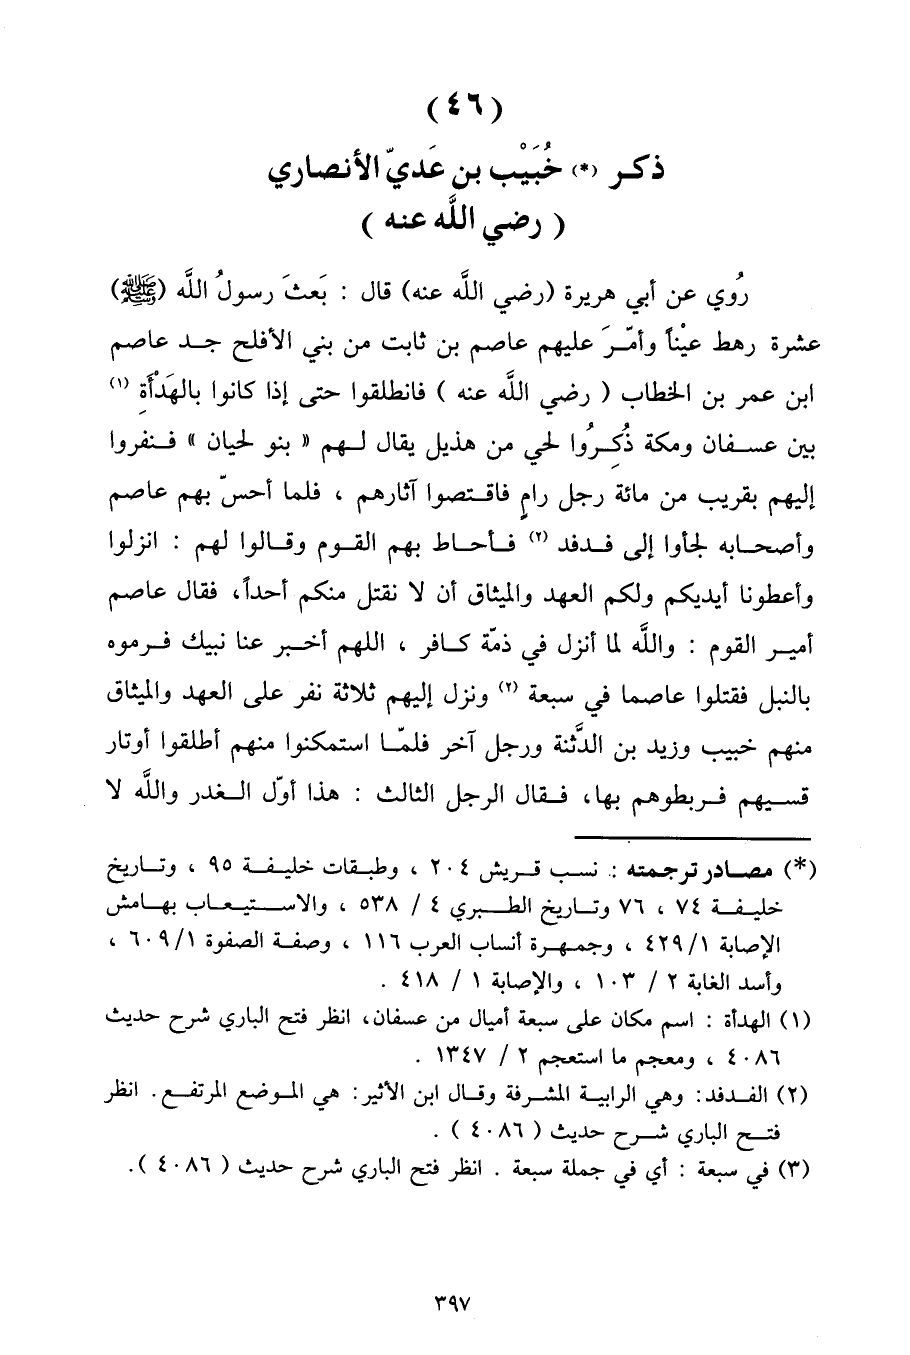 (٤٦)
ذكر (*) خُبَيْب بن عَديّ الأنصاري
( رضي اللَّه عنه )
رُوي عن أبي هريرة (رضي اللَّه عنه) قال : بَعثَ رسولُ اللَّه (ﷺ)
عشرة رهط عيْناً وأمّرَ عليهم عاصم بن ثابت من بني الأفلح جد عاصم
ابن عمر بن الخطاب ( رضي اللَّه عنه ) فانطلقوا حتى إذا كانوا بالهَدْأَةِ (١)
بين عسفان ومكة ذُكِرُوا لحي من هذيل يقال لهم « بنو لحيان » فنفروا
إليهم بقريب من مائة رجل رامٍ فاقتصوا آثارهم ، فلما أحسّ بهم عاصم
وأصحابه لجأوا إلى فدفد (٢) فأحاط بهم القوم وقالوا لهم : انزلوا
وأعطونا أيديكم ولكم العهد والميثاق أن لا نقتل منكم أحداً، فقال عاصم
أمير القوم : واللَّه لما أنزل في ذمّة كافر ، اللهم أخبر عنا نبيك فرموه
بالنبل فقتلوا عاصما في سبعة (٢) ونزل إليهم ثلاثة نفر على العهد والميثاق
منهم خبيب وزيد بن الدَّثنة ورجل آخر فلمّا استمكنوا منهم أطلقوا أوتار
قسيهم فربطوهم بها، فقال الرجل الثالث : هذا أوّل الغدر واللَّه لا
(*) مصادر ترجمته : نسب قريش ٢٠٤ ، وطبقات خليفة ٩٥ ، وتاريخ
خليفة ٧٤ ، ٧٦ وتاريخ الطبري ٤ / ٥٣٨ ، والاستيعاب بهامش
الإصابة ٤٢٩/١ ، وجمهرة أنساب العرب ١١٦ ، وصفة الصفوة ٦٠٩/١ ،
وأسد الغابة ٢ / ١٠٣ ، والإصابة ١ / ٤١٨ .
(١) الهدأة : اسم مكان على سبعة أميال من عسفان، انظر فتح الباري شرح حديث
٤٠٨٦ ، ومعجم ما استعجم ٢ / ١٣٤٧ .
(٢) الفدفد: وهي الرابية المشرفة وقال ابن الأثير: هي الموضع المرتفع. انظر
فتح الباري شرح حديث ( ٤٠٨٦ ) .
(٣) في سبعة : أي في جملة سبعة . انظر فتح الباري شرح حديث ( ٤٠٨٦ ).
٣٩٧